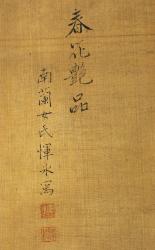 春花艷品
南蘭女氏惲冰寫